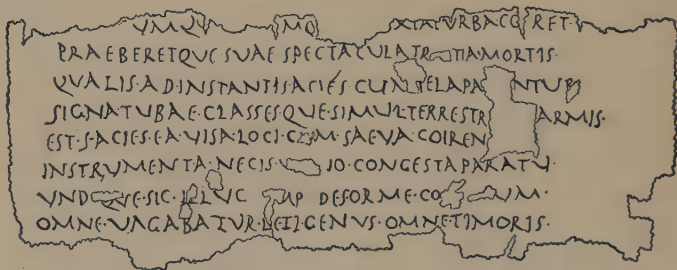 VMQV MQ XTATVRBACO RET·
PRAEBERETQVE·SVAE SPECTACVLATR TIA·MORTIS·
QVALIS·ADINSTANTIS·ACIES CVM TELAPA NTVR
SIGNATVBAE·CLASSESQVE·SIMVL·TERRESTR ARMIS·
EST·S·ACIES·EA·VISA·LOCI·CVM·SAEVA·COIREN
INSTRVMENTA·NECIS·V IO·CONGESTAPARATV·
VND QVE·SIC·ILLVC MP DEFORME·CO VM·
OMNE·VAGABATVR·LETI·GENVS·OMNETIMORIS·